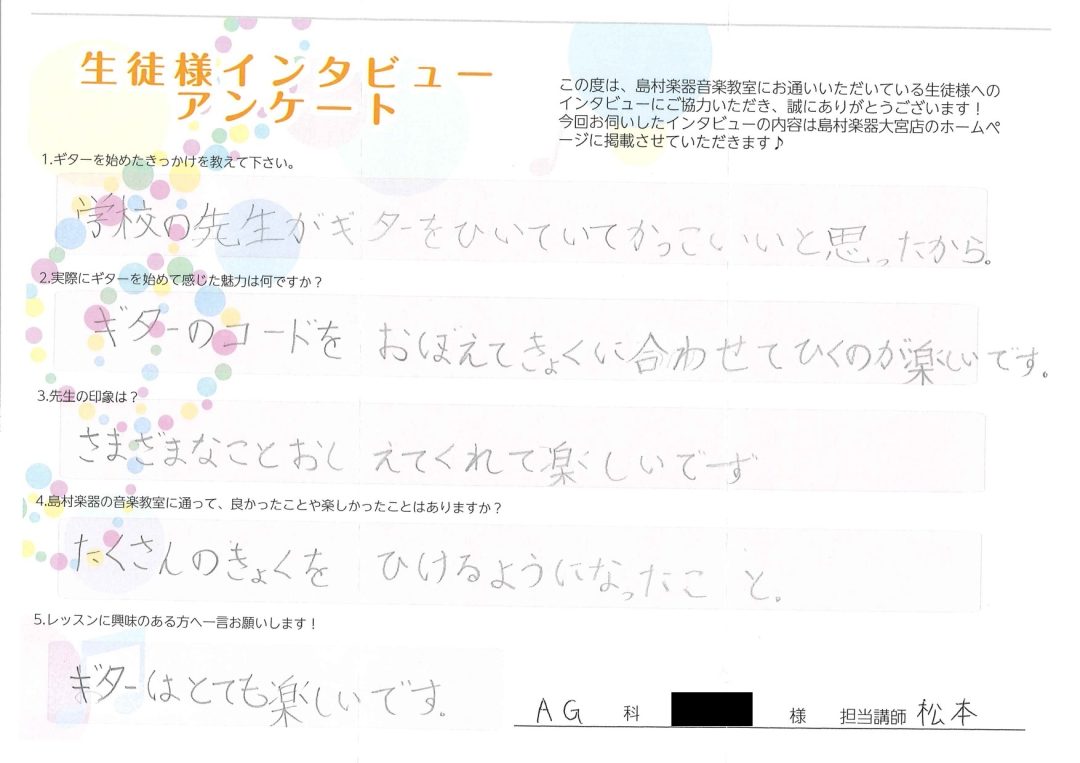 生徒様インタビュー
アンケート
この度は、島村楽器音楽教室にお通いいただいている生徒様への
インタビューにご協力いただき、誠にありがとうございます！
今回お伺いしたインタビューの内容は島村楽器大宮店のホームペ
ージに掲載させていただきます♪
1.ギターを始めたきっかけを教えて下さい。
学校の先生がギターをひいていてかっこいいと思ったから。
2.実際にギターを始めて感じた魅力は何ですか？
ギターのコードをおぼえてきょくに合わせてひくのが楽しいです。
3.先生の印象は？
さまざまなことおしえてくれて楽しいでーず
4.島村楽器の音楽教室に通って、良かったことや楽しかったことはありますか？
たくさんのきょくをひけるようになったこと。
5.レッスンに興味のある方へ一言お願いします！
ギターはとても楽しいです。
AG 科 様 担当講師 松本